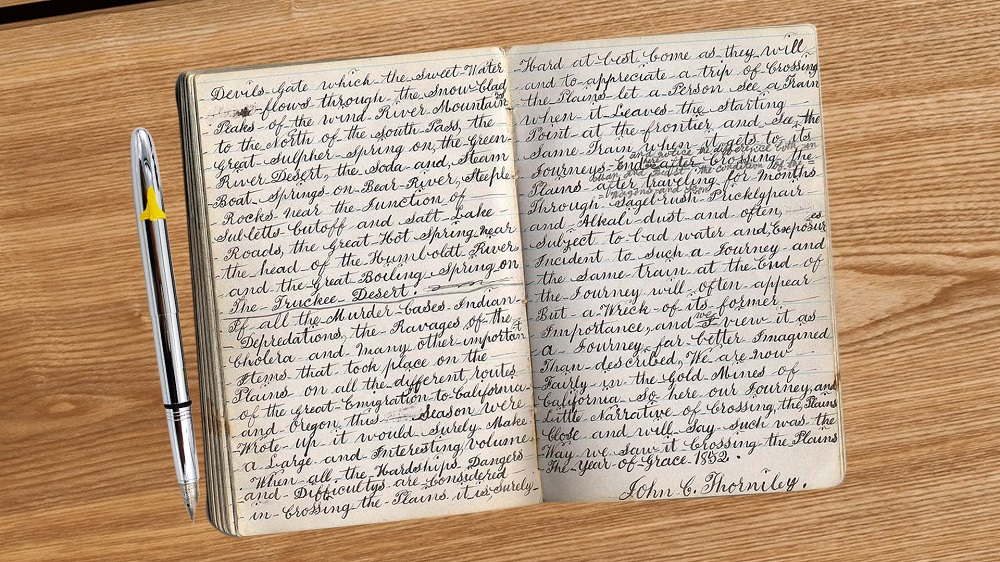 Devils Gate which the Sweet-Water
flows through the Snow-Clad
Peaks of the wind-River Mountain
to the North of the South Pass, the
Great Sulpher-Spring on the Green-
River Desert, the Soda and Steam
Boat Springs on Bear-River, Steeple
Rocks near the Junction of
Subletts Cutoff and Salt Lake
Roads, the Great Hot Spring near
the head of the Humboldt River
and the Great Boiling Spring on
The Truckee Desert.
If all the Murder-Cases Indian
Depredations, the Ravages of the
Cholera and many other important
Items that took place on the
Plains on all the different routes
of the Great Emigration to California
and Oregon this Season were
Wrote up it would Surely Make
a Large and Interesting volume
When all the Hardships Dangers
and Difficultys are Considered
in Crossing the Plains it is Surely
Hard at best Come as they will
and to appreciate a trip of Crossing
the Plains let a Person See a Train
when it Leaves the Starting
Point at the frontier and See the
Same Train when it gets to its
and notice the difference both in
Journeys End after Crossing the
the condition of the
Plains after traveling for months
Wagons and
Through Sagebrush Pricklypair
and Alkali dust and often,
Subject to bad water and Exposures
Incident to Such a Journey and
the Same train at the End of
the Journey will often appear
But a Wreck of its former
Importance, and we view it as
a Journey far better Imagined
Than described, We are now
Fairly in the Gold Mines of
California So here our Journey and
Little Narrative of Crossing the Plains
Close and will Say Such was the
Way we Saw it Crossing the Plains
The Year of Grace 1852.
John C. Thorniley.